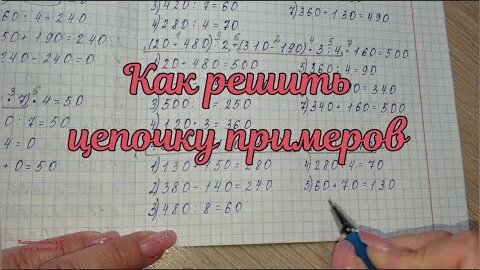 3) 420 : 7 = 60
7) 360 + 130 = 490
60 · 4 = 240
4) 280 : 4 = 70
50 + 190 = 240
(20 + 480) : 2 + (310 - 190) · 3 : 4 + 160 = 500
240 - 240 = 0
20 + 480 = 500
5) 360 : 4 = 90
Как решить
· 7) · 4 = 50
= 340
0 : 7 = 50
3) 500 : = 250
7) 340 + 160 = 500
4 = 0
4) 120 · 3 = 360
цепочку примеров
+ 0 = 50
1) 130 + 150 = 280
4) 280 : 4 = 70
2) 380 - 140 = 240
5) 60 + 70 = 130
3) 480 : 8 = 60